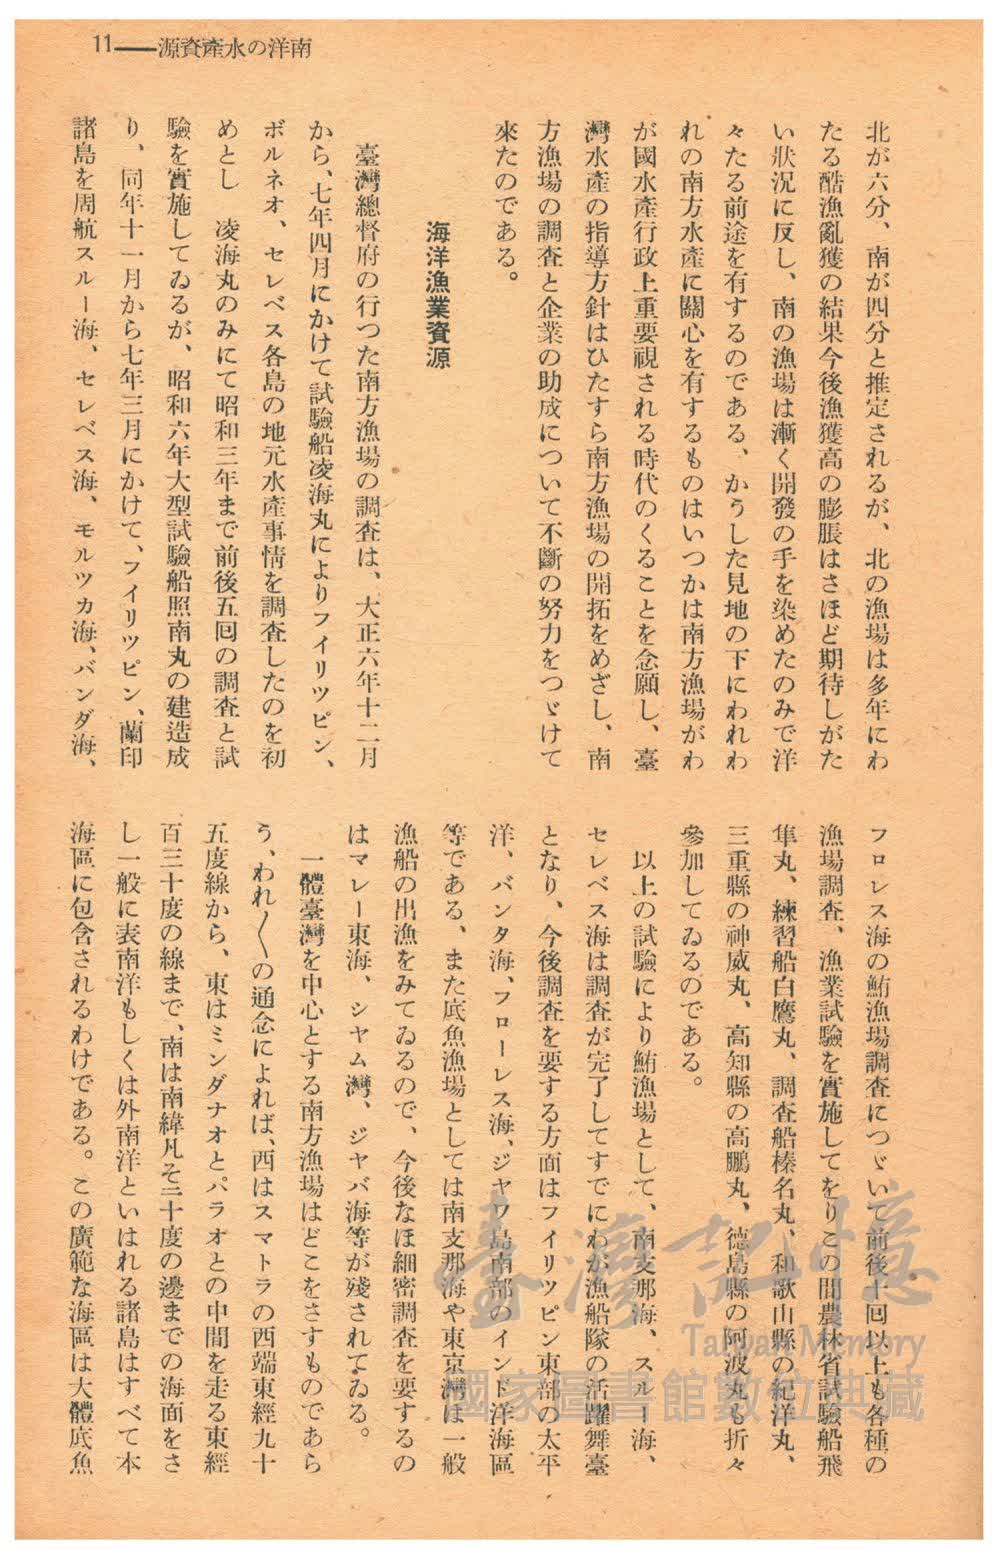 11――源資產水の洋南
北が六分、南が四分と推定されるが、北の漁場は多年にわ
たる酷漁亂獲の結果今後漁獲高の膨脹はさほど期待しがた
い狀況に反し、南の漁場は漸く開發の手を染めたのみで洋
々たる前途を有するのである、かうした見地の下にわれわ
れの南方水產に關心を有するものはいつかは南方漁場がわ
が國水產行政上重要視される時代のくることを念願し、臺
灣水產の指導方針はひたすら南方漁場の開拓をめざし、南
方漁場の調査と企業の助成について不斷の努力をつゞけて
來たのである。
海洋漁業資源
臺灣總督府の行つた南方漁場の調査は、大正六年十二月
から、七年四月にかけて試驗船凌海丸によりフイリツピン、
ボルネオ、セレベス各島の地元水產事情を調査したのを初
めとし 凌海丸のみにて昭和三年まで前後五囘の調査と試
驗を實施してゐるが、昭和六年大型試驗船照南丸の建造成
り、同年十一月から七年三月にかけて、フイリツピン、蘭印
諸島を周航スルー海、セレベス海、モルツカ海、バンダ海、
フロレス海の鮪漁場調査につゞいて前後十囘以上も各種の
漁場調査、漁業試驗を實施してをりこの間農林省試驗船飛
隼丸、練習船白鷹丸、調査船榛名丸、和歌山縣の紀洋丸、
三重縣の神威丸、高知縣の高鵬丸、德島縣の阿波丸も折々
參加してゐるのである。
以上の試驗により鮪漁場として、南支那海、スルー海、
セレベス海は調査が完了してすでにわが漁船隊の活躍舞臺
となり、今後調査を要する方面はフイリツピン東部の太平
洋、バンタ海、フローレス海、ジヤワ島南部のインド洋海區
等である、また底魚漁場としては南支那海や東京灣は一般
漁船の出漁をみてゐるので、今後なほ細密調査を要するの
はマレー東海、シヤム灣、ジヤバ海等が殘されてゐる。
一體臺灣を中心とする南方漁場はどこをさすものであら
う、われ〱の通念によれば、西はスマトラの西端東經九十
五度線から、東はミンダナオとパラオとの中間を走る東經
百三十度の線まで、南は南緯凡そ二十度の邊までの海面をさ
し一般に表南洋もしくは外南洋といはれる諸島はすべて本
海區に包含されるわけである。この廣範な海區は大體底魚
臺灣記憶
Taiwan Memory
國家圖書館數位典藏